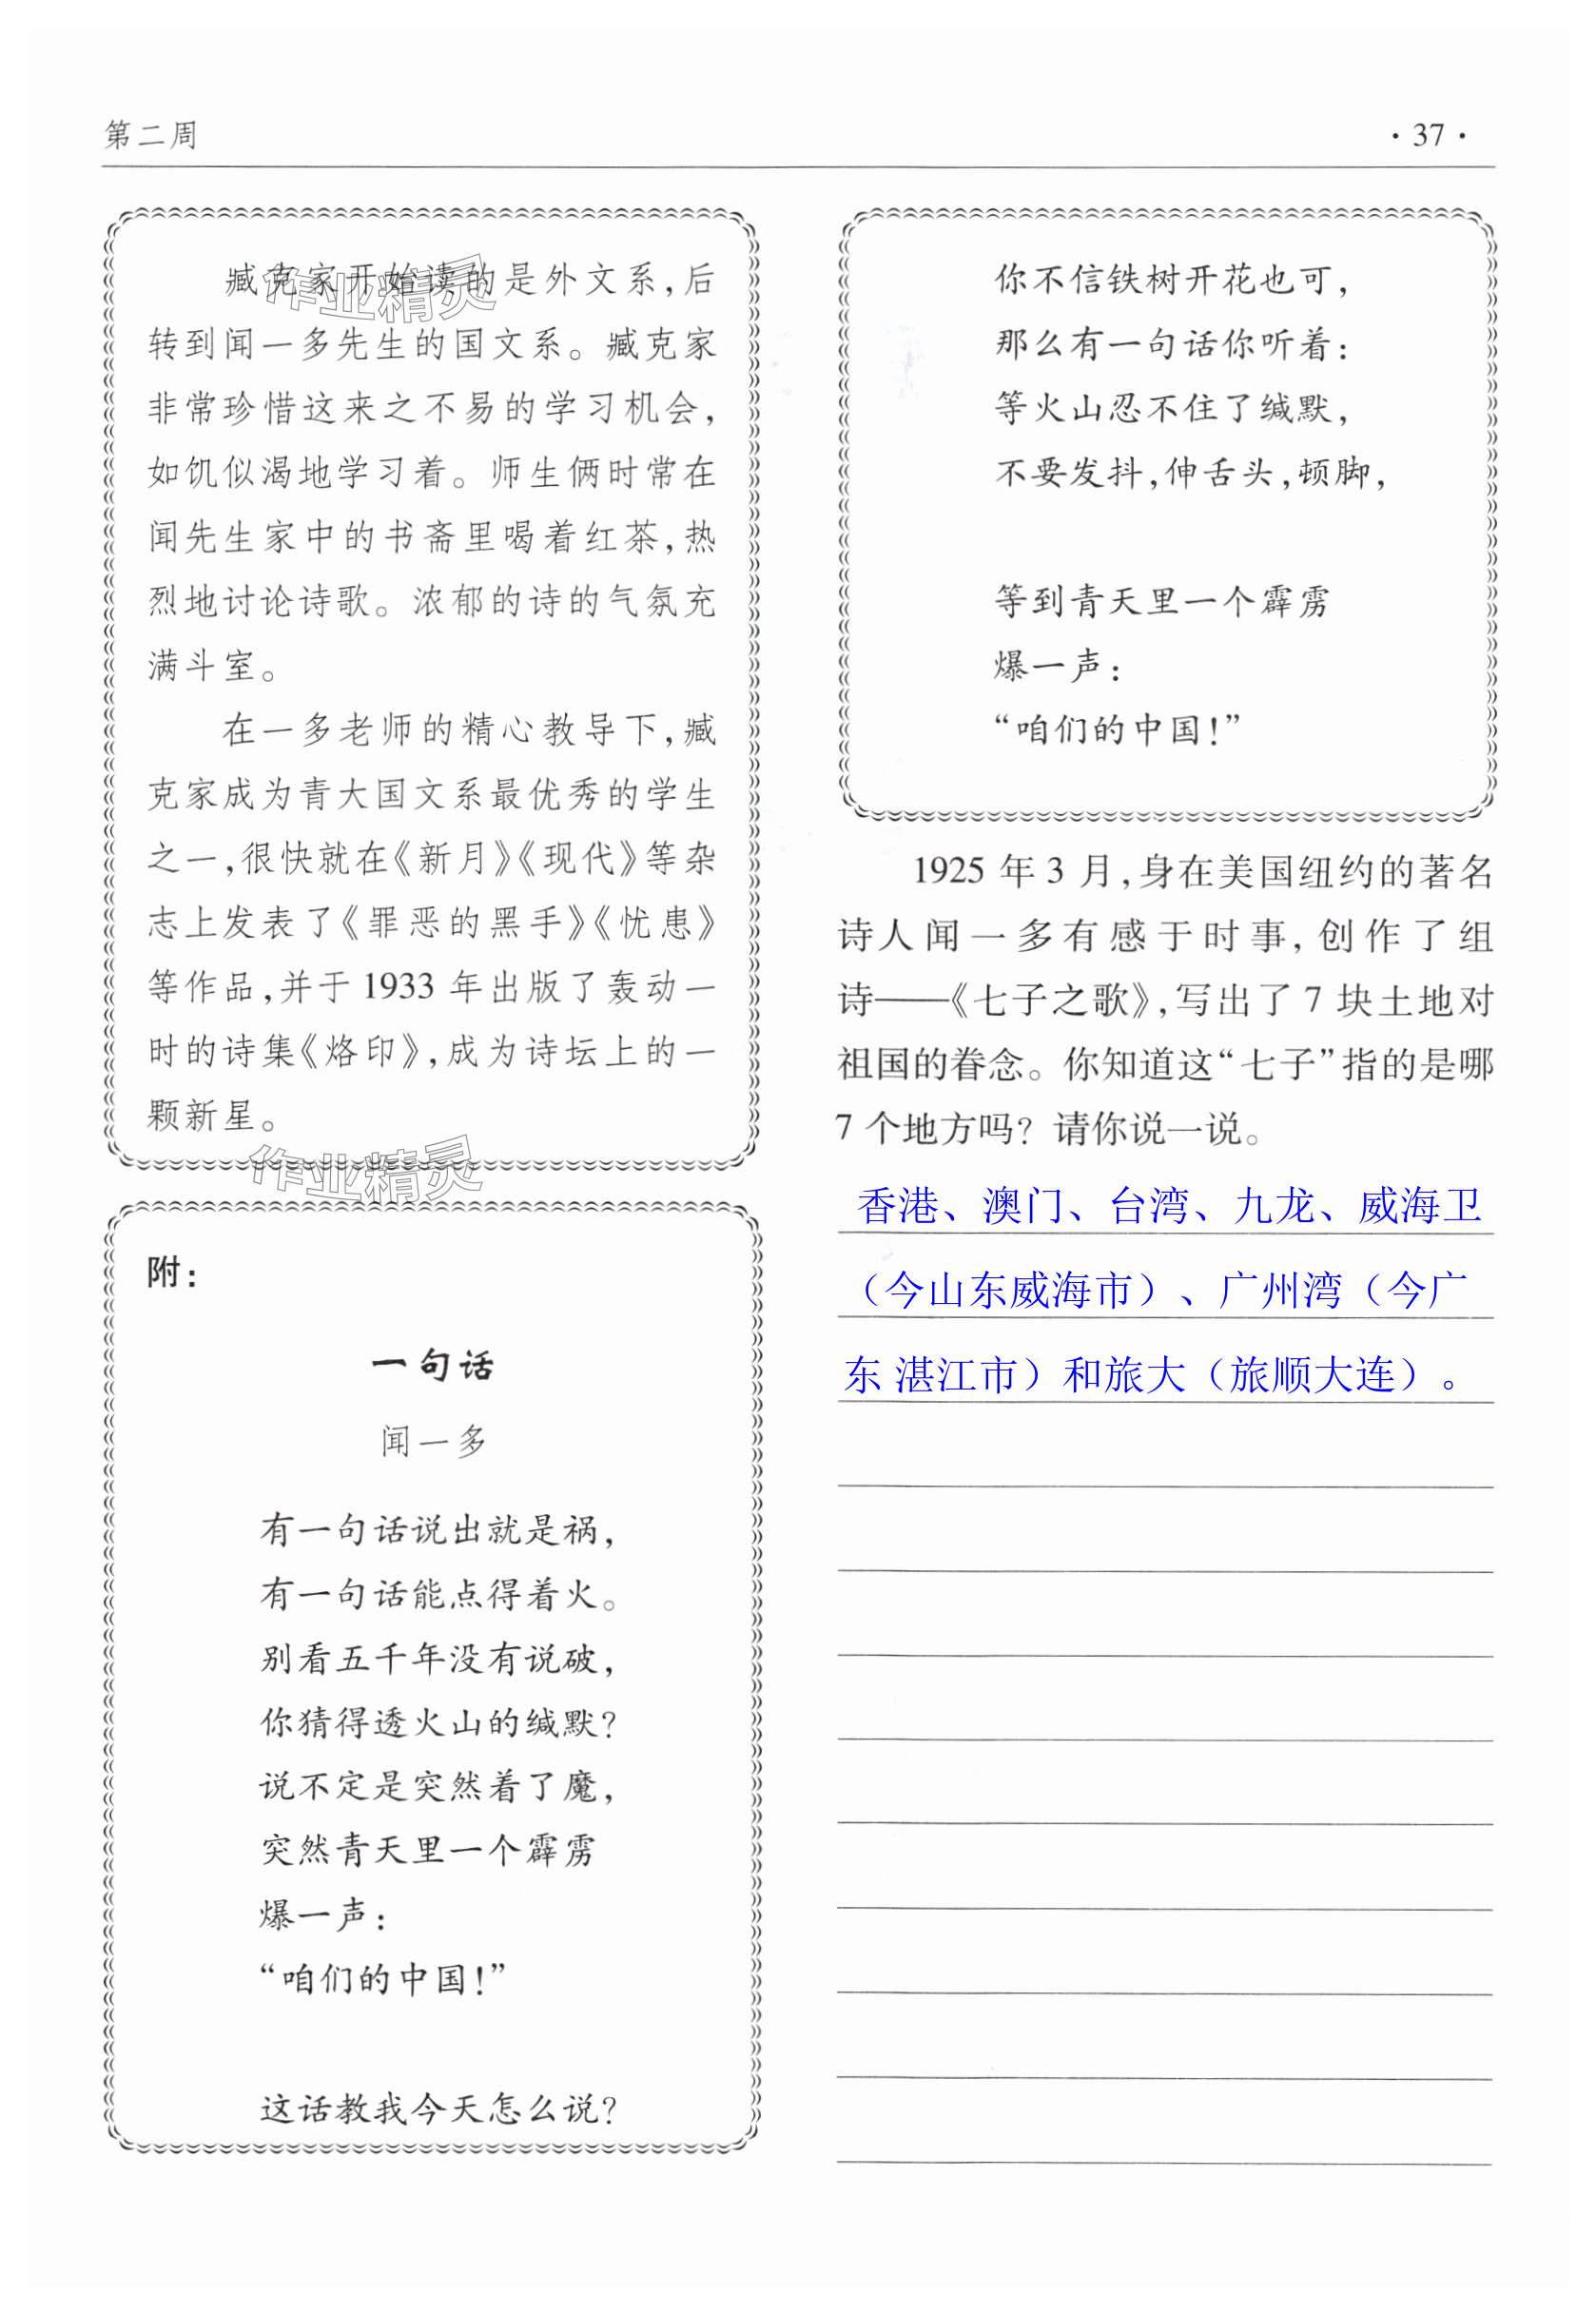 第二周
·37·
臧克家开始读的是外文系,后
转到闻一多先生的国文系。臧克家
非常珍惜这来之不易的学习机会,
如饥似渴地学习着。师生俩时常在
闻先生家中的书斋里喝着红茶,热
烈地讨论诗歌。浓郁的诗的气氛充
满斗室。
在一多老师的精心教导下,臧
克家成为青大国文系最优秀的学生
之一,很快就在《新月》《现代》等杂
志上发表了《罪恶的黑手》《忧患》
等作品,并于1933年出版了轰动一
时的诗集《烙印》,成为诗坛上的一
颗新星。
作业精灵
作业精灵
附:
一句话
闻一多
有一句话说出就是祸,
有一句话能点得着火。
别看五千年没有说破,
你猜得透火山的缄默?
说不定是突然着了魔,
突然青天里一个霹雳
爆一声:
“咱们的中国!”
这话教我今天怎么说?
你不信铁树开花也可,
那么有一句话你听着:
等火山忍不住了缄默,
不要发抖,伸舌头,顿脚,
等到青天里一个霹雳
爆一声:
“咱们的中国!”
1925年3月,身在美国纽约的著名
诗人闻一多有感于时事,创作了组
诗——《七子之歌》,写出了7块土地对
祖国的眷念。你知道这“七子”指的是哪
7个地方吗?请你说一说。
香港、澳门、台湾、九龙、威海卫
（今山东威海市）、广州湾（今广
东 湛江市）和旅大（旅顺大连）。